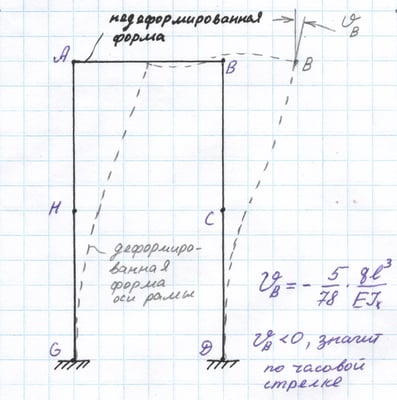 недеформированная
форма
𝜗_B
A
B
B
H
C
деформиро-
ванная
форма
оси рамы
𝜗_B = - 5/78 · ql³/EIₓ
𝜗_B < 0, значит
по часовой
стрелке
G
D